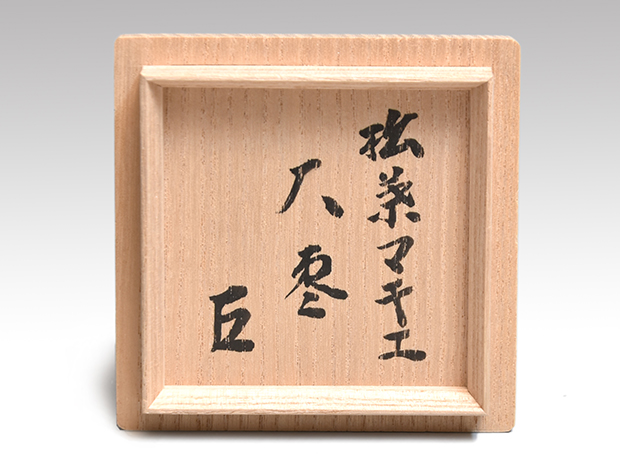 松葉マキエ
大棗